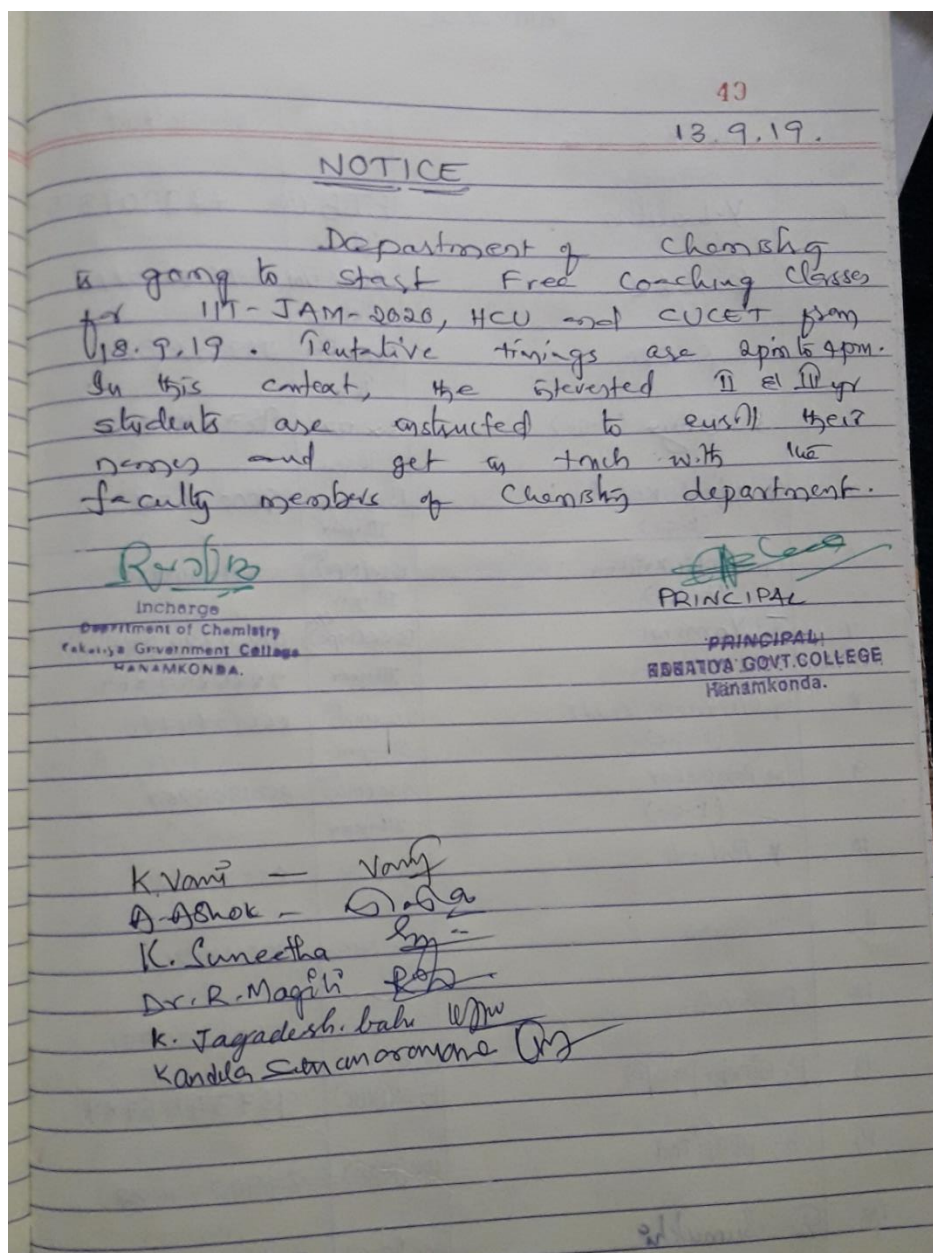 49
13.9.19.
NOTICE
Department of Chemistry
is going to start Free Coaching Classes
for IIT-JAM-2020, HCU and CUCET from
18.9.19. Tentative timings are 2pm to 4pm.
In this context, the interested II & III yr
students are instructed to enroll their
names and get in touch with the
faculty members of Chemistry department.
Incharge
Department of Chemistry
Kakatiya Government College
HANAMKONDA.
PRINCIPAL
PRINCIPAL
KAKATIYA GOVT.COLLEGE
Hanamkonda.
K.Vani — Vani
A.Ashok -
K. Suneetha
Dr. R. Magili
K. Jagadesh. babu
Kandula